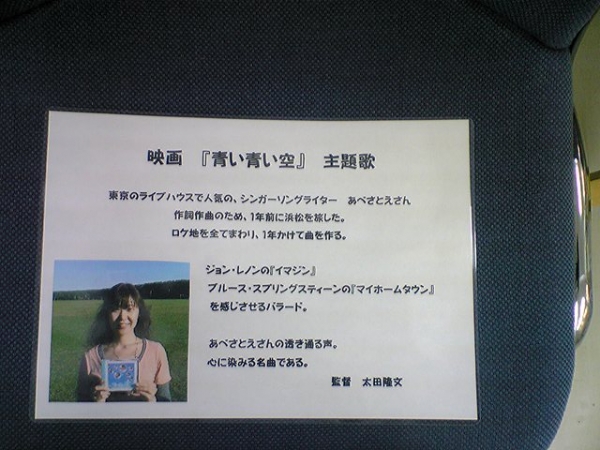 映画 『青い青い空』 主題歌
東京のライブハウスで人気の、シンガーリングライター あべさとえさん
作詞作曲のため、1年前に浜松を旅した。
ロケ地を全てまわり、1年かけて曲を作る。
ジョン・レノンの『イマジン』
ブルース・スプリングスティーンの『マイホームタウン』
を感じさせるバラード。
あべさとえさんの透き通る声。
心に染みる名曲である。
監督 太田隆文